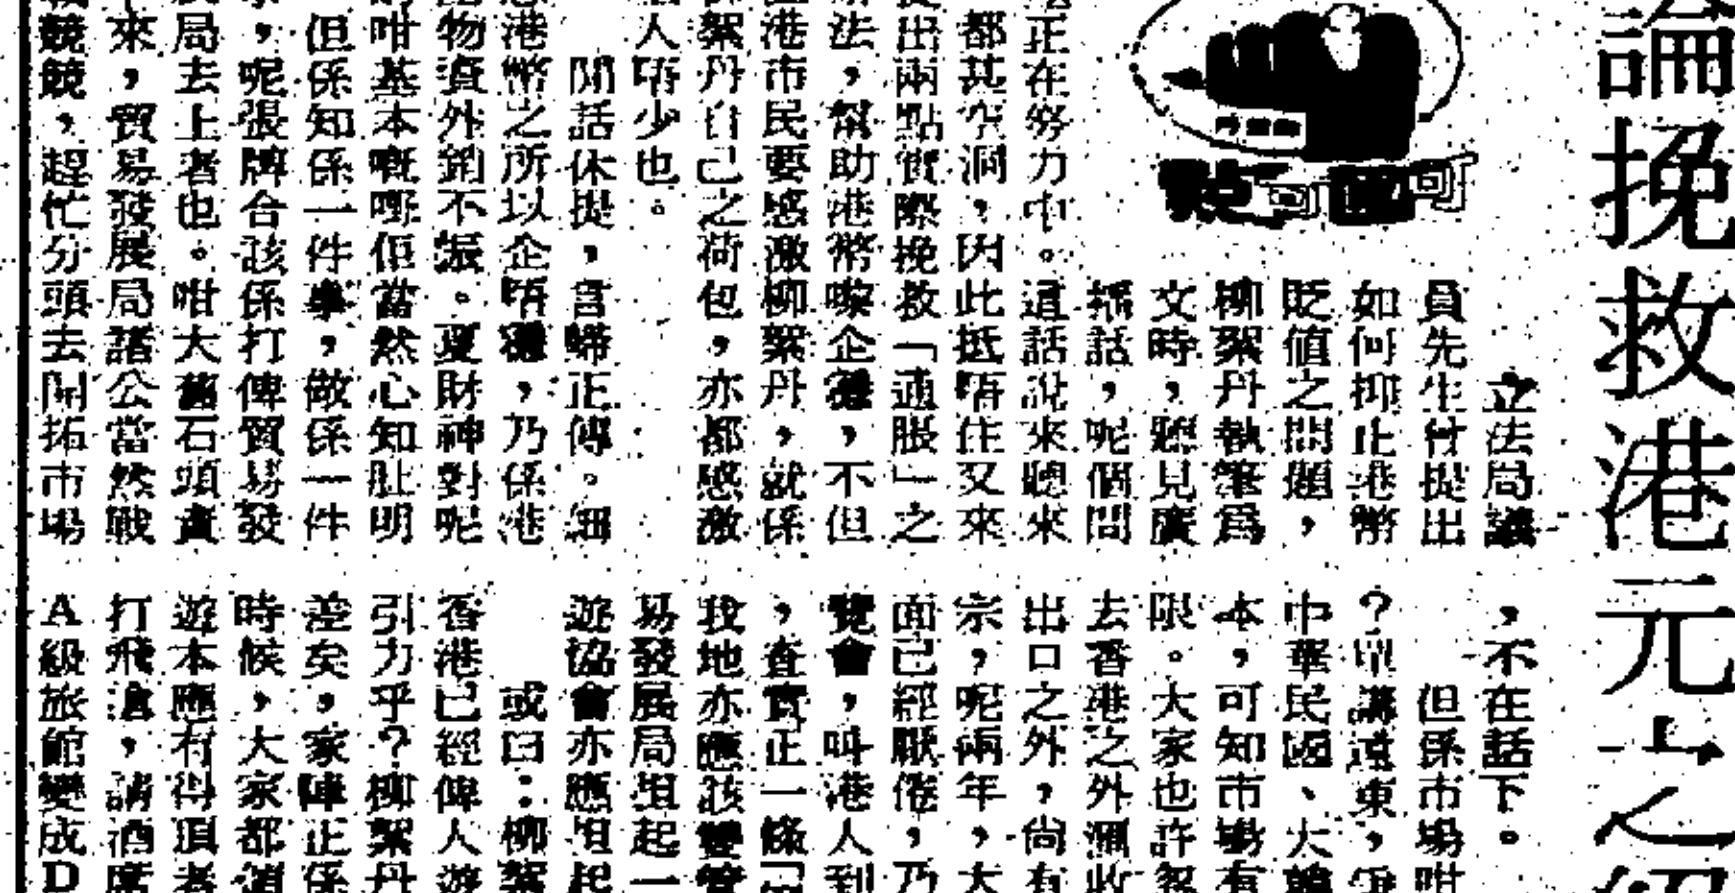 論挽救港元之
可圈可點
立法局議
員先生曾提出
如何抑止港幣
貶值之問題，
柳絮丹執筆爲
文時，聽見廣
播話，呢個問
正在努力中。這話說來聽來
都甚空洞，因此抵唔住又來
提出兩點實際挽救「通脹」之
法，幫助港幣嚟企穩，不但
港市民要感激柳絮丹，就係
絮丹自己之荷包，亦都感激
人唔少也。
閒話休提，言歸正傳。細
港幣之所以企唔穩，乃係港
物資外銷不振。夏財神對呢
咁基本嘅嘢佢當然心知肚明
但係知係一件事，做係一件
，呢張牌合該係打俾貿易發
局去上者也。咁大舊石頭責
來，貿易發展局諸公當然戰
競競，趕忙分頭去開拓市場
，不在話下。
但係市場咁
？單講遠東，
中華民國、大韓
本，可知市場有
限。大家也許忽
去香港之外滙收
出口之外，尚有
宗，呢兩年，大
面已經厭倦，乃
覽會，叫港人到
，查實正一條
我地亦應該雙管
易發展局坦起一
遊協會亦應坦起
或曰：柳絮
香港已經俾人遊
引力乎？柳絮丹
差矣，家陣正係
時候，大家都
遊本應有得頂者
打飛滄，請酒席
A級旅館變成D